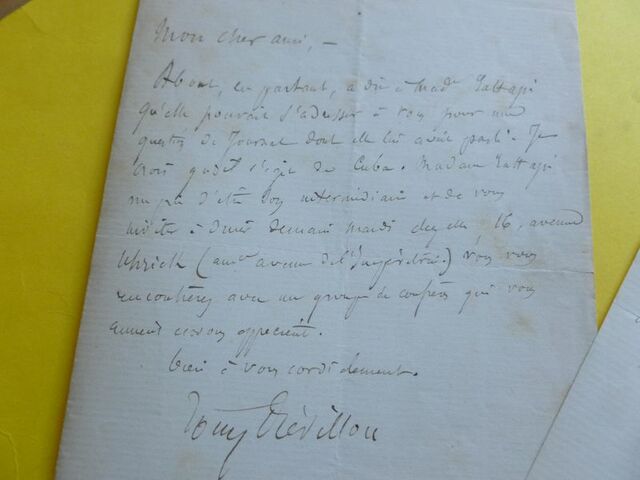 Mon cher ami, —
About, en partant, a dit à Mad.e Rattazzi
qu'elle pouvait s'adresser à vous pour une
question de Journal dont elle lui avait parlé. Je
crois qu'il s'agit de Cuba. Madame Rattazzi
me prie d'être son intermédiaire et de vous
inviter à dîner demain mardi chez elle, 16, avenue
Uhrich (anc.ne avenue de l'Impératrice.) Vous vous
rencontrerez avec un groupe de confrères qui vous
aiment et vous apprécient.
bien à vous cordialement.
Tony Révillon